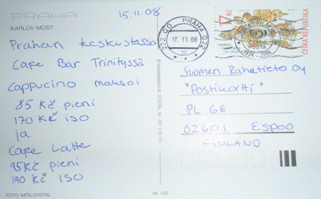 PRAHA
KARLŮV MOST
15.11.08
Prahan keskustassa
Cafe Bar Trinityssä
Cappucino maksoi
85 Kč pieni
170 Kč iso
ja
Cafe Latte
95 Kč pieni
190 Kč ISO
FOTO: MÍŤA DOSTÁL
PRAHA 022
17.11.08
17 Kč
Suomen Rahatieto Oy
"Postikortti"
PL 66
02601 Espoo
FINLAND